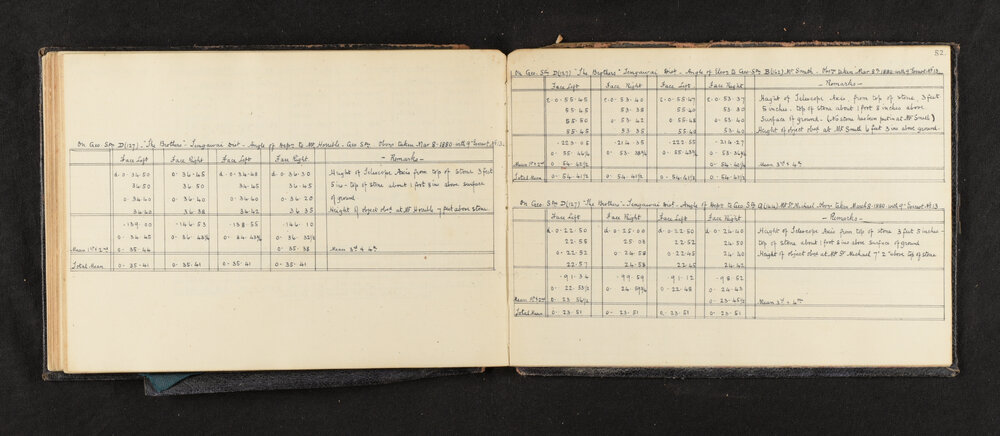 On Geo. Stn D(127) "The Brothers" Tengawai Dist. - Angle of Depr. to Mt Horrible - Geo Stn Obsns taken Mar 8 - 1880 with 9" Instrt No 13.
Face Left Face Right Face Left Face Right - Remarks -
d. 0. 34. 50 0. 36. 45 d. 0. 34. 45 0. 36. 30 Height of Telescope Axis from top of stone 3 feet
34 50 36. 50 34. 45 36 45 5 in - top of stone about 1 foot 8 in above surface
0. 34 40 0. 36. 40 0. 34. 40 0. 36 20 of ground
34 40 36 38 34. 42 36 35 Height of object obsd at Mt Horrible feet above stone
.139.00 .146.53 .138.55 .146.10
0. 34. 45 0. 36 0. 34 0. 36
Mean 1st & 2nd 0. 35. 44 0. 35. 38 Mean 3rd & 4th
Total Mean 0. 35. 41 0. 35. 41 0. 35. 41 0. 35. 41
52
On Geo. Stn D(127) "The Brothers" Tengawai Dist. - Angle of Elevn to Geo. Stn Mt Small. Obsns taken Mar 8th 1880 with 9" Instrt No 13.
Face Left Face Right Face Left Face Right - Remarks -
E. 0. 55. 45 E. 0. 53. 40 E. 0. 55. 47 E. 0. 53. 37 Height of Telescope Axis from top of stone 3 feet
55 45 53. 35 55. 40 53 30 5 inches. top of stone about 1 foot 8 inches above
55. 50 0. 53 42 0. 55. 48 0. 53. 40 surface of ground. (No stone has been put in at Mt Small)
55. 45 53 35 55. 40 53. 40 Height of object obsd at Mt Small feet 3 ins above ground.
.223.05 .214.35 .222.55 .214.27
0. 55. 0. 53. 0. 55. 0. 53.
Mean 1st & 2nd 0. 54. 0. 54. Mean 3rd & 4th
Total Mean 0. 54. 41 1/2 0. 54. 41 1/2 0. 54. 41 1/2 0. 54. 41 1/2
On Geo. Stn D(127) "The Brothers" Tengawai Dist. - Angle of Depr to Geo. Stn Mt St Michael. Obsns taken March 8. 1880 with 9" Instrt No 13.
Face Left Face Right Face Left Face Right - Remarks -
d. 0. 22. 50 d. 0. 25. 00 d. 0. 22. 50 d. 0. 24. 40 Height of Telescope Axis from top of stone 3 feet 5 inches -
22. 58 25. 03 22. 52 24. 50 top of stone about 1 foot 8 ins above surface of ground
0. 22. 52 0. 24. 58 0. 22. 45 24. 30 Height of object obsd at Mt St Michael 7' 2" above top of stone
22. 57 24. 58 22. 45 24. 42
.91.34 .99.59 .91.12 .98.52
0. 22. 53 1/2 0. 24. 59 3/4 0. 22. 48 0. 24. 43
Mean 1st & 2nd 0. 23. 56 1/2 0. 23. 45 1/2 Mean 3rd & 4th
Total Mean 0. 23. 51 0. 23. 51 0. 23. 51 0. 23. 51